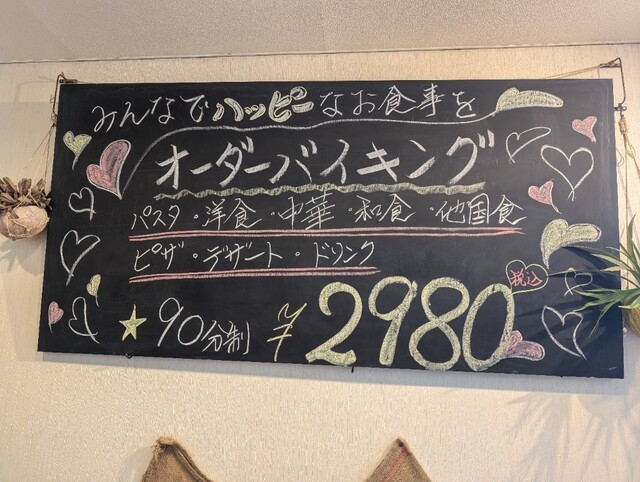 みんなでハッピーなお食事を
オーダーバイキング
パスタ・洋食・中華・和食・他国食
ピザ・デザート・ドリンク
★90分制 ¥2980 税込